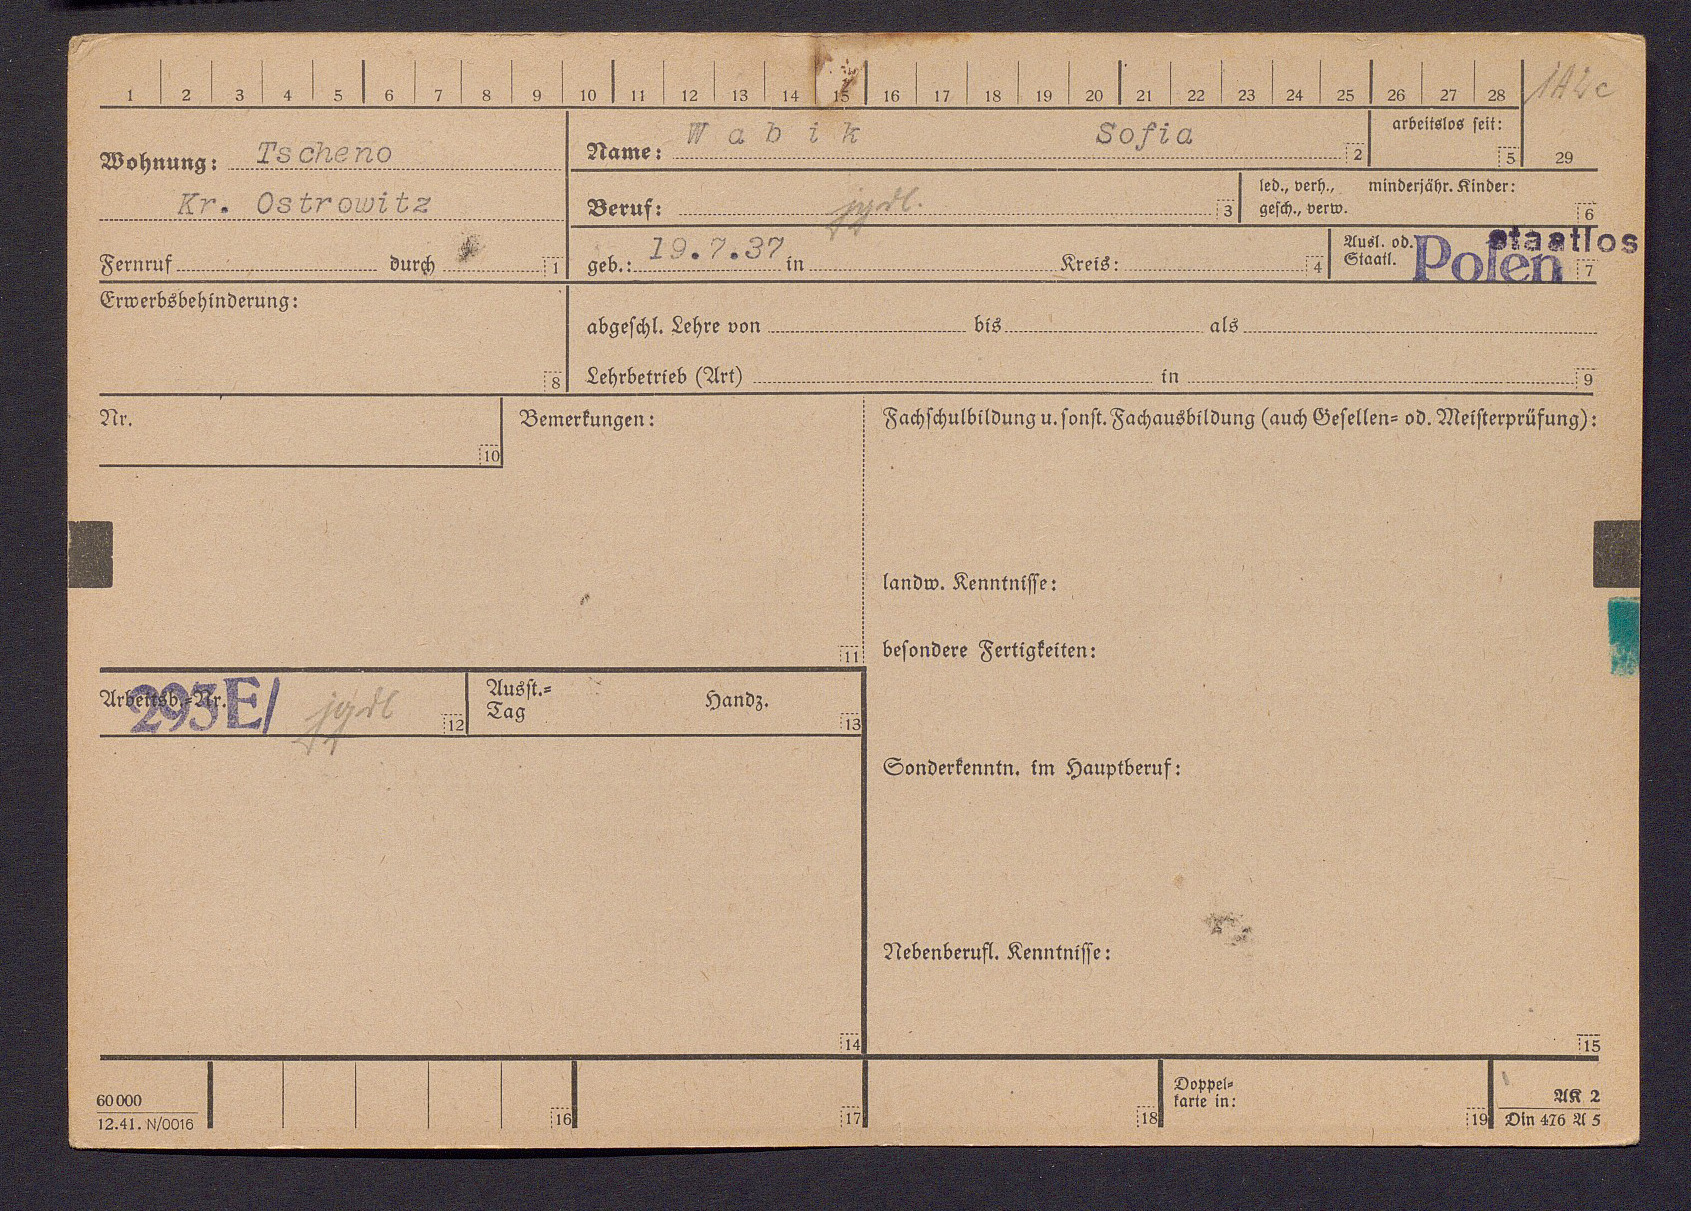 1 2 3 4 5 6 7 8 9 10 11 12 13 14 15 16 17 18 19 20 21 22 23 24 25 26 27 28
Wohnung: Tscheno
Kr. Ostrowitz
Fernruf durch 1
Name: Wabik Sofia 2
arbeitslos seit: 5
29
Beruf: jgdl. 3
led., verh., minderjähr. Kinder:
gesch., verw. 6
geb.: 19.7.37 in Kreis: 4
Ausl. od. staatlos
Staatl. Polen 7
Erwerbsbehinderung:
8
abgeschl. Lehre von bis als
Lehrbetrieb (Art) in 9
Nr.
10
Bemerkungen:
11
Fachschulbildung u. sonst. Fachausbildung (auch Gesellen= od. Meisterprüfung):
landw. Kenntnisse:
besondere Fertigkeiten:
Arbeitsb.=Nr. 293E/ jgdl 12
Ausst.= Handz.
Tag 13
Sonderkenntn. im Hauptberuf:
Nebenberufl. Kenntnisse:
14
15
60000
12.41. N/0016
16
17
18
Doppel=
karte in:
19
AK 2
Din 476 A 5